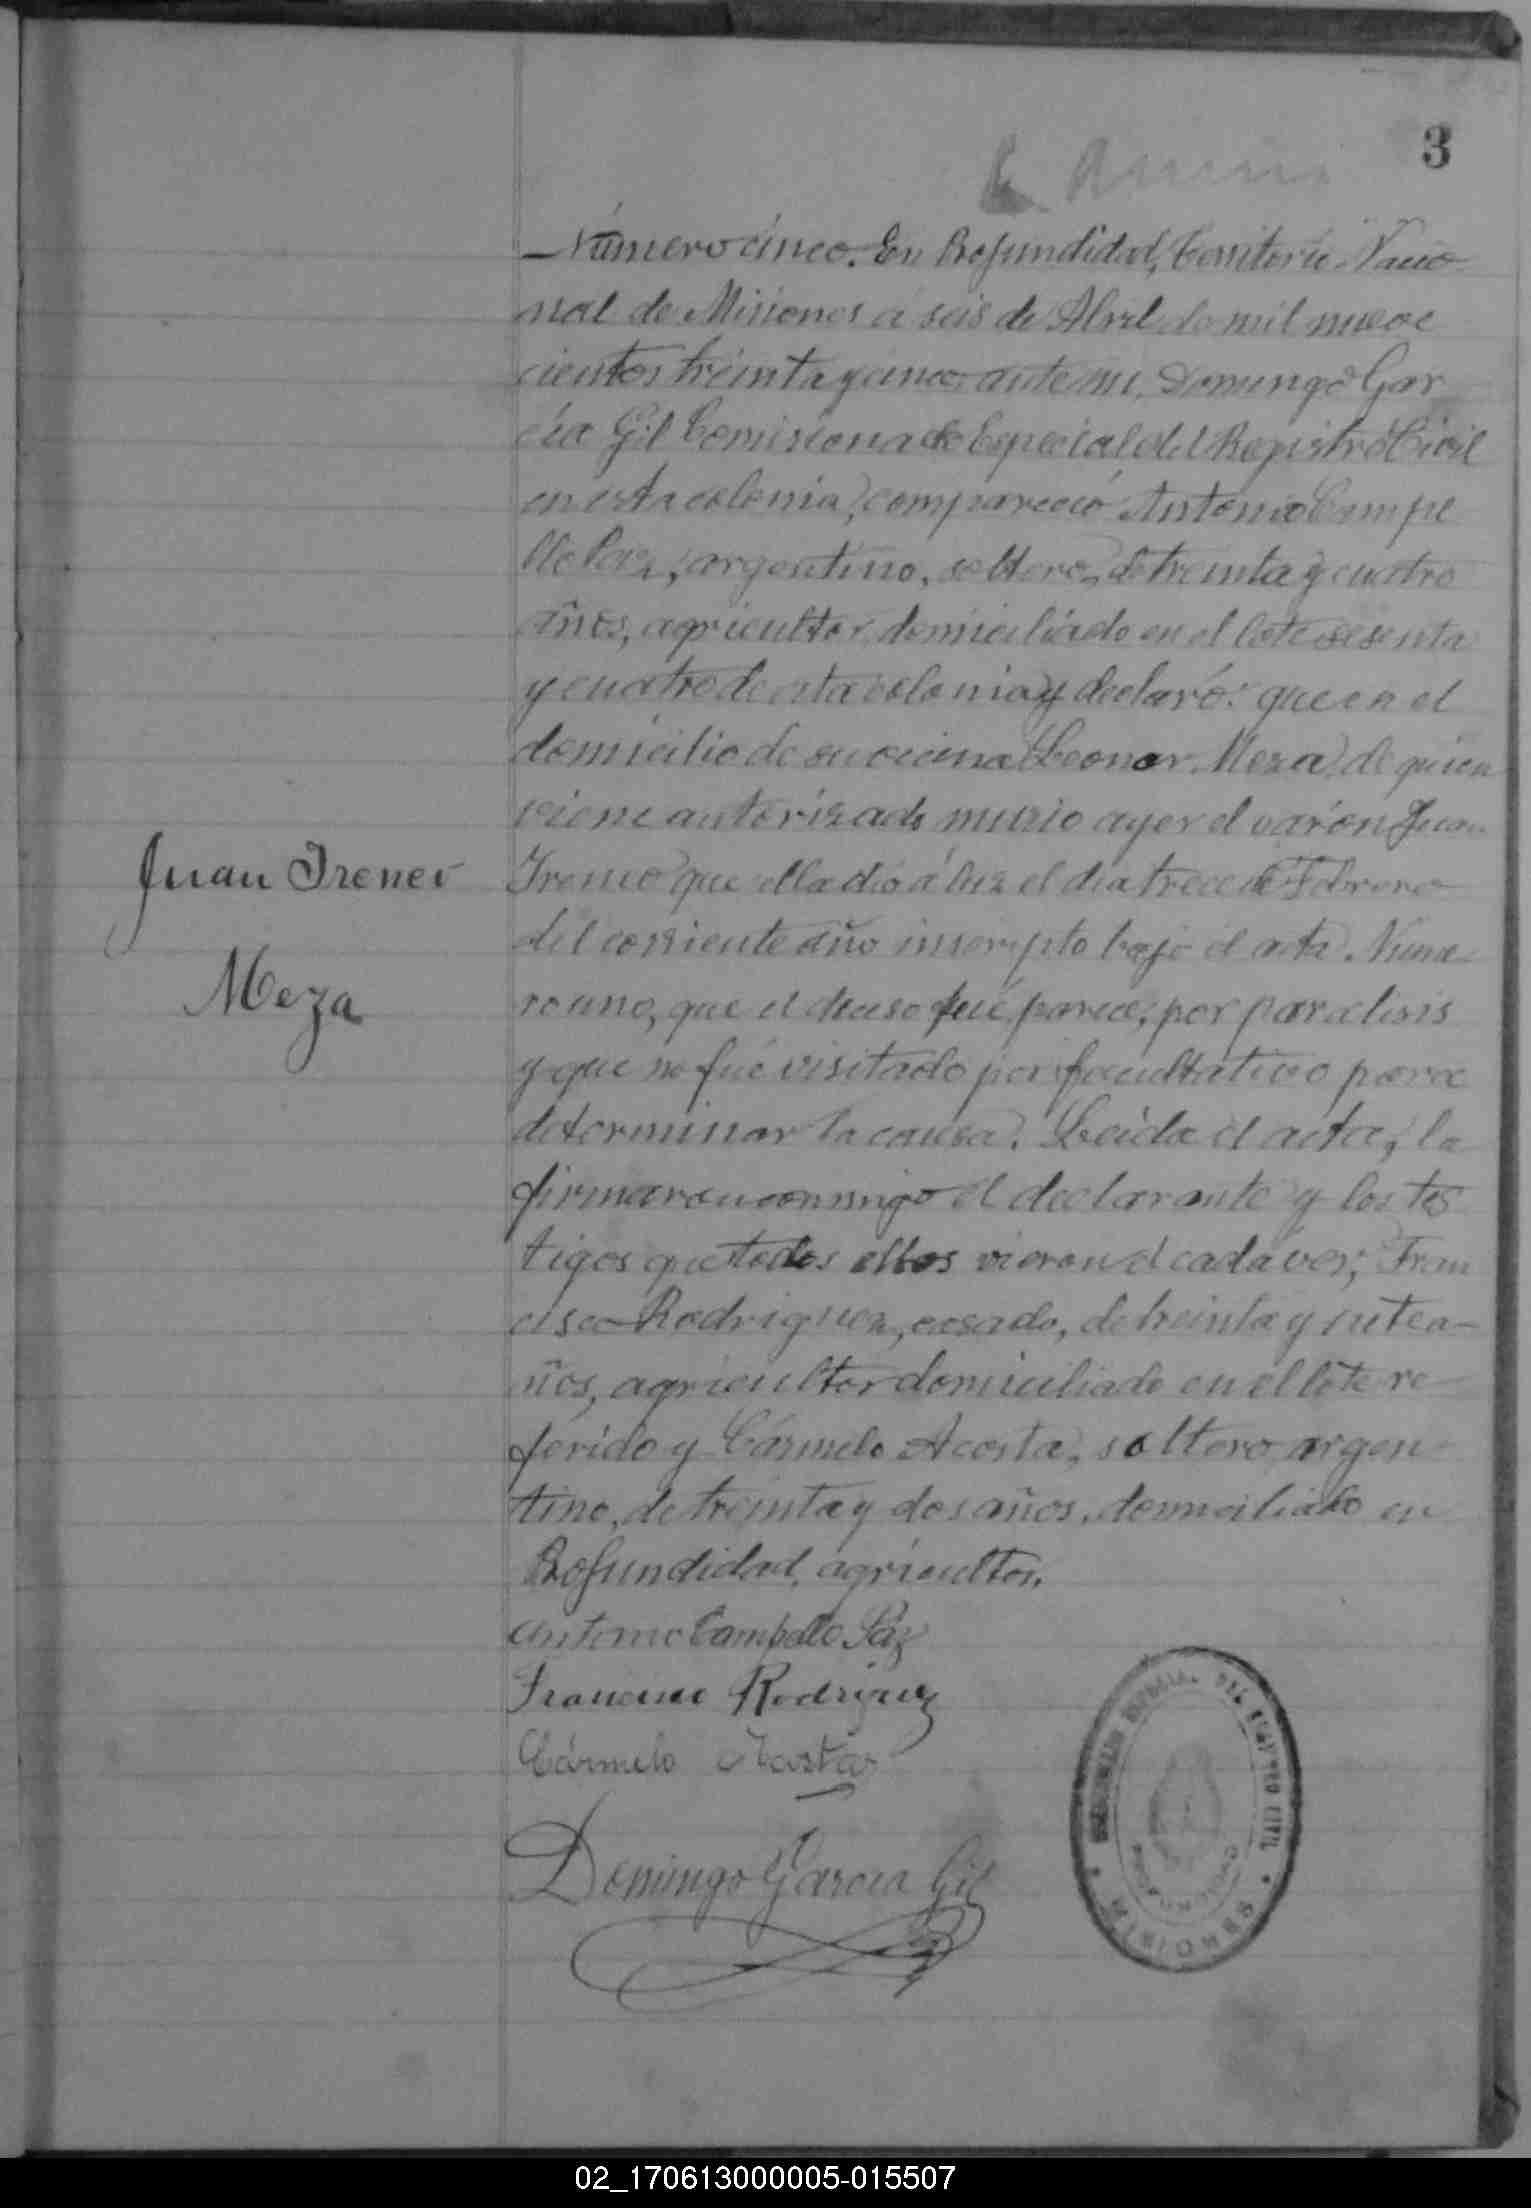 3
Juan Ireneo
Meza
Número cinco. En Profundidad, Territorio Nacio
nal de Misiones á seis de Abril de mil nueve
cientos treinta y cinco, ante mi, Domingo Gar
cía Gil Comisionado Especial del Registro Civil
en esta colonia, compareció Antonio Campe
llo Paz, argentino, soltero, de treinta y cuatro
años, agricultor, domiciliado en el lote sesenta
y cuatro de esta colonia y declaró: que en el
domicilio de su vecina Leonor Meza, de quien
viene autorizado murio ayer el varón Juan
Ireneo que ella dió á luz el dia trece de Febrero
del corriente año inscripto bajo el acta Núme
ro uno, que el deceso fué, parece, por paralisis
y que no fué visitado por facultativo para
determinar la causa. Leida el acta, la
firmaron conmigo el declarante y los tes
tigos que todos ellos vieron el cadaver; Fran
cisco Rodriguez, casado, de treinta y siete a-
ños, agricultor domiciliado en el lote re
ferido y Cármelo Acosta, soltero argen
tino, de treinta y dos años, domiciliado en
Profundidad, agricultor.
Antonio Campello Paz
Francisco Rodriguez
Cármelo Acosta
Domingo García Gil
DEL REGISTRO CIVIL
MISIONES
02_170613000005-015507